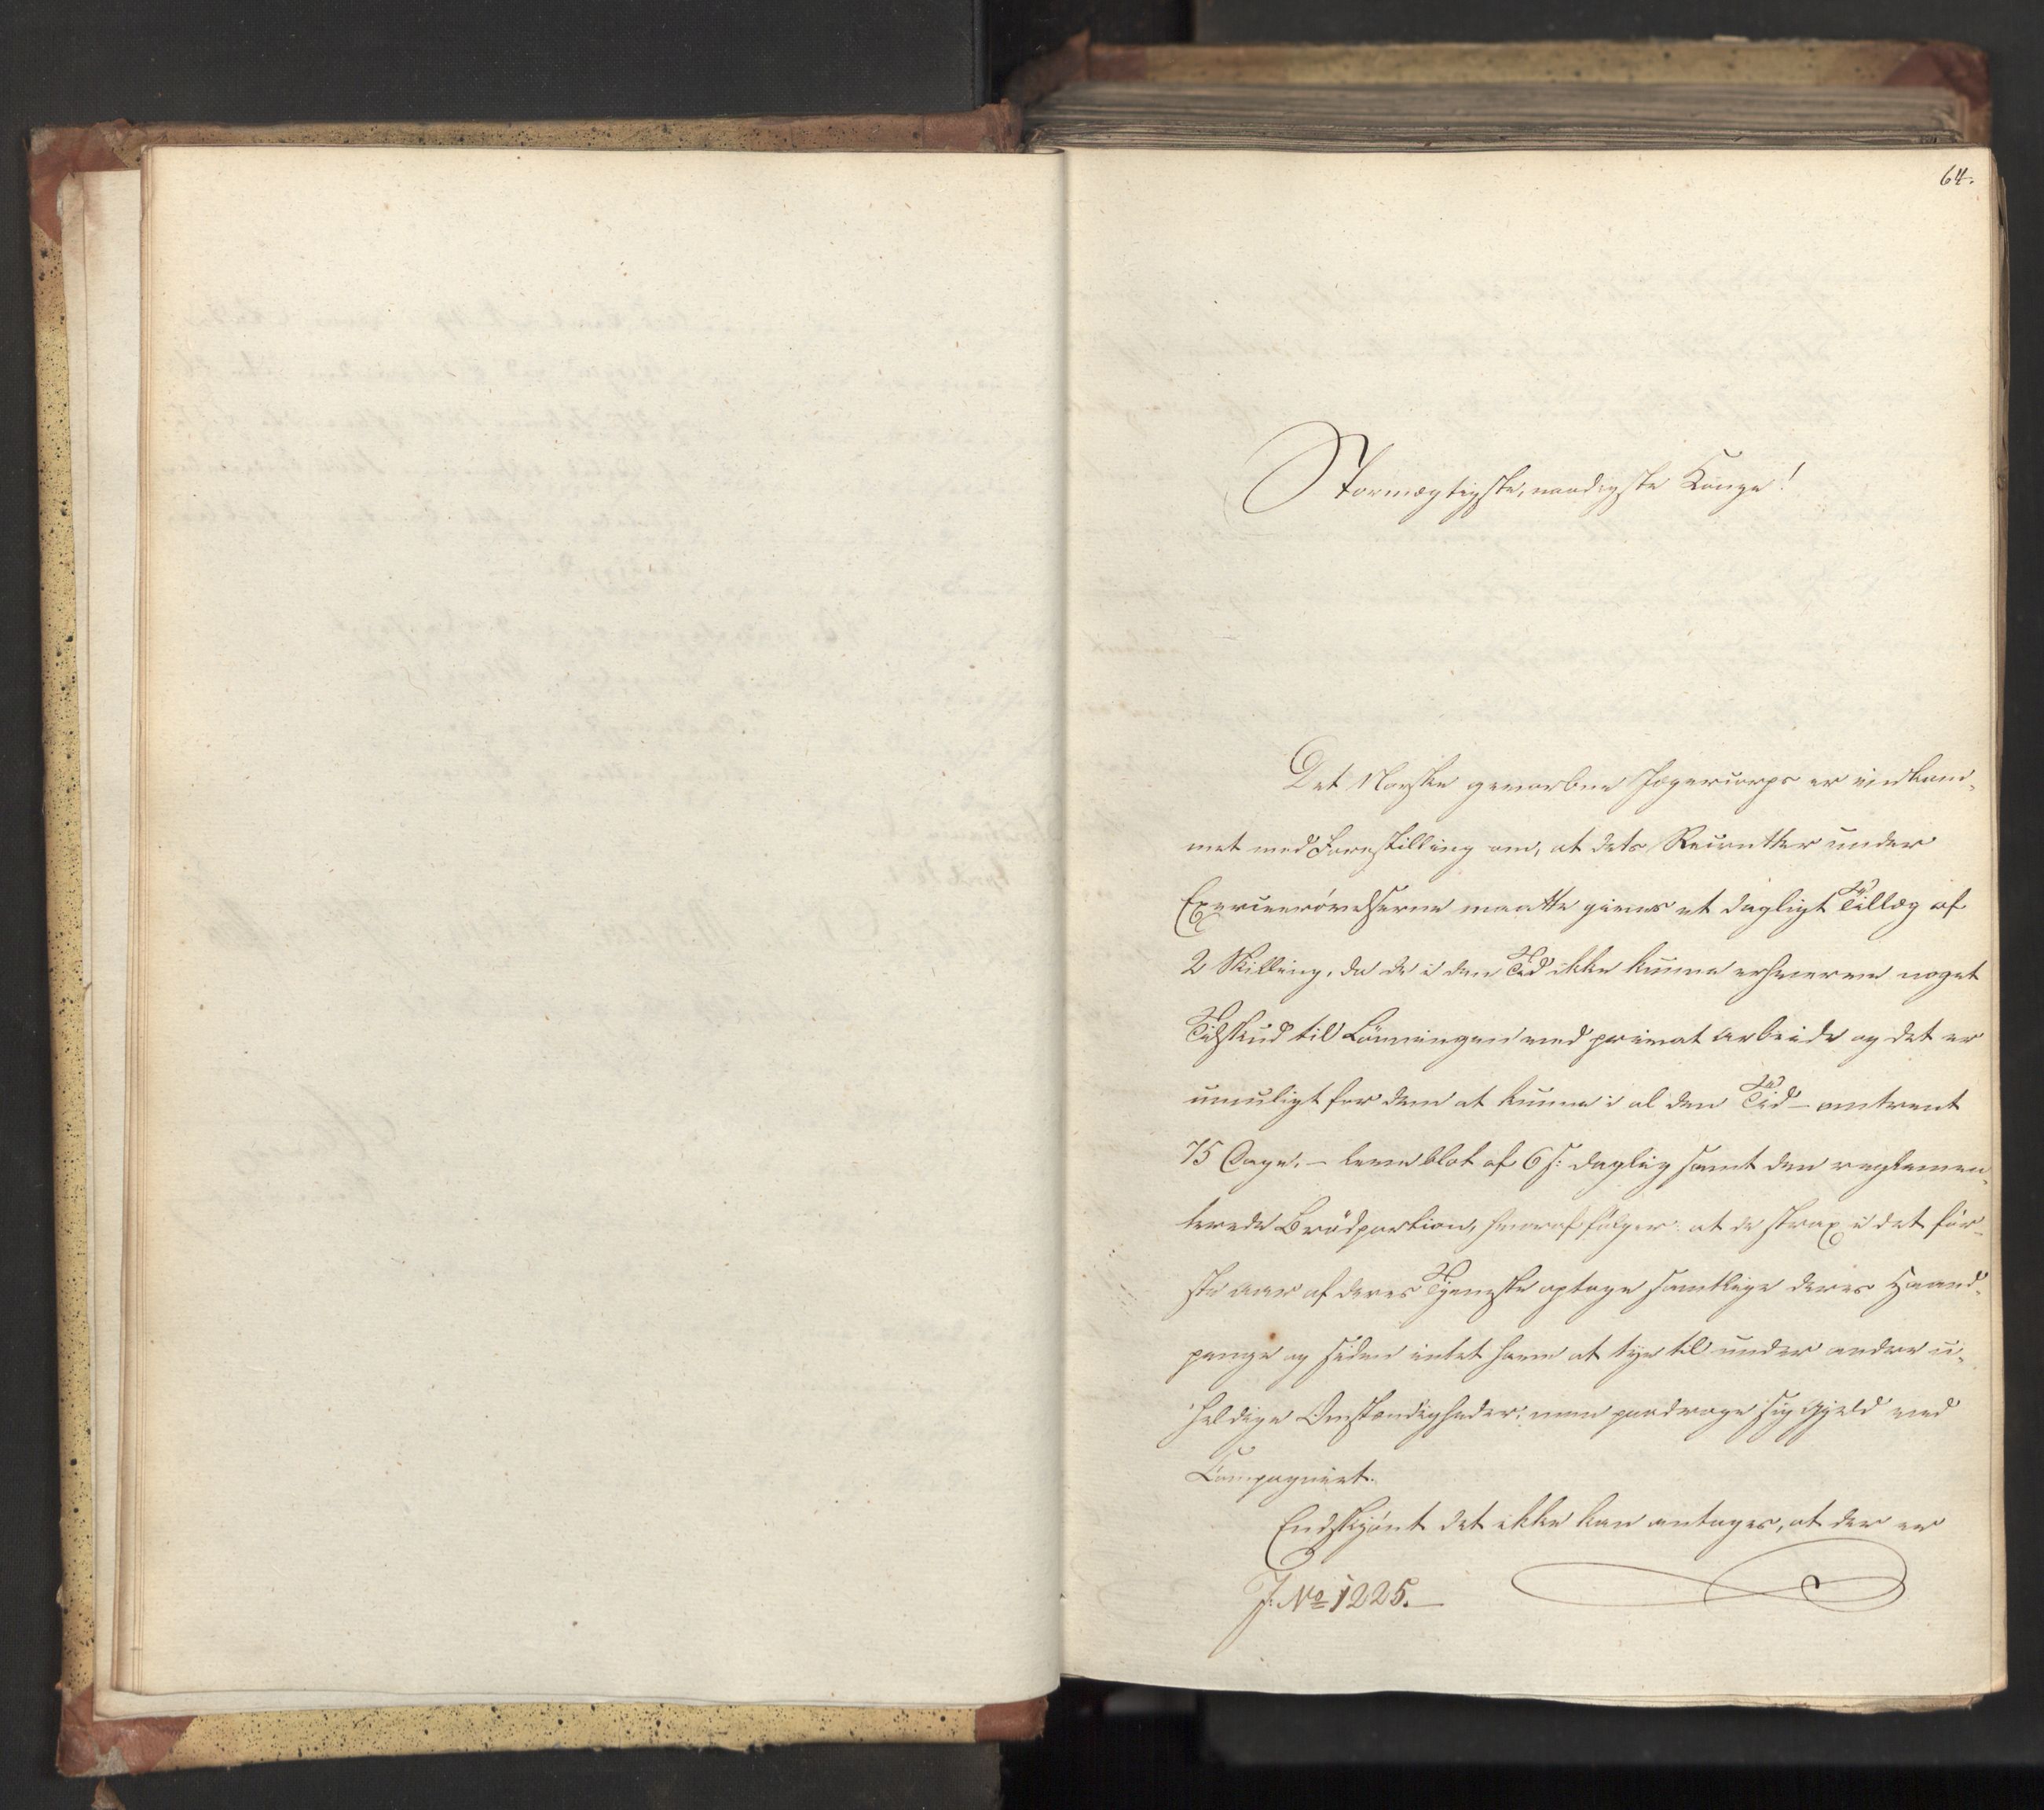 64.
Stormægtigste, naadigste Konge!
Det Norske gevorbne Jægercorps er indkom-
met med Forestilling om, at dets Recrutter under
Exerceerøvelserne maatte gives et dagligt Tillæg af
2 Skilling, da de i den Tid ikke kunne erhverve noget
Tilskud til Lønningen ved privat Arbeide og det er
umuligt for dem at kunne i al den Tid – omtrent
75 Dage, – leve blot af 6 s: daglig samt den reglemen-
terede Brødportion, hvoraf følger at de strax i det før-
ste Aar af deres Tjeneste optage samtlige deres Haand-
penge og siden intet have at tye til under andre u-
heldige Omstændigheder, men paadrage sig Gjeld ved
Compagniet.
Endskjønt det ikke kan antages, at der er
J: No 1225.